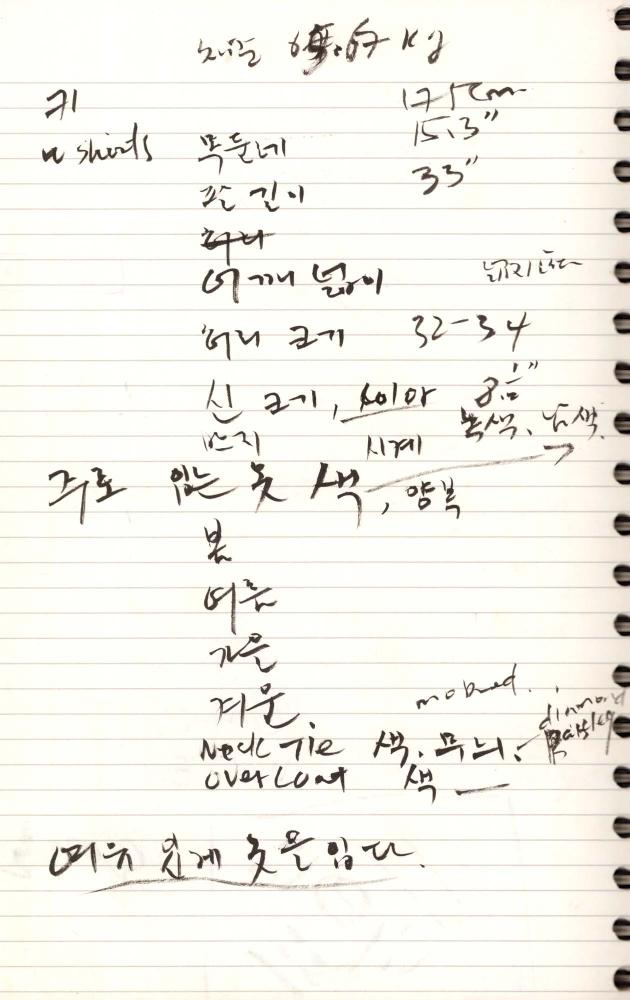 체중 67 Kg
키 175cm
w shirts 목둘레 15.3"
팔 길이 33"
허리
어깨 넓이
허리 크기 32-34
신 크기, 싸이아 8½"
반지 시계 녹색, 남색.
주로 입는 옷 색, 양복
봄
여름
가을
겨울.
Neck Tie 색. 무늬. diamond paisley
overcoat 색 —
여유 있게 옷을 입다.